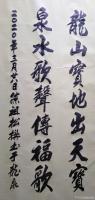 龍山寶地出天寶
泉水歌聲傳福歌
二〇二〇年三月廿八日徐祖松撰书于龙泉